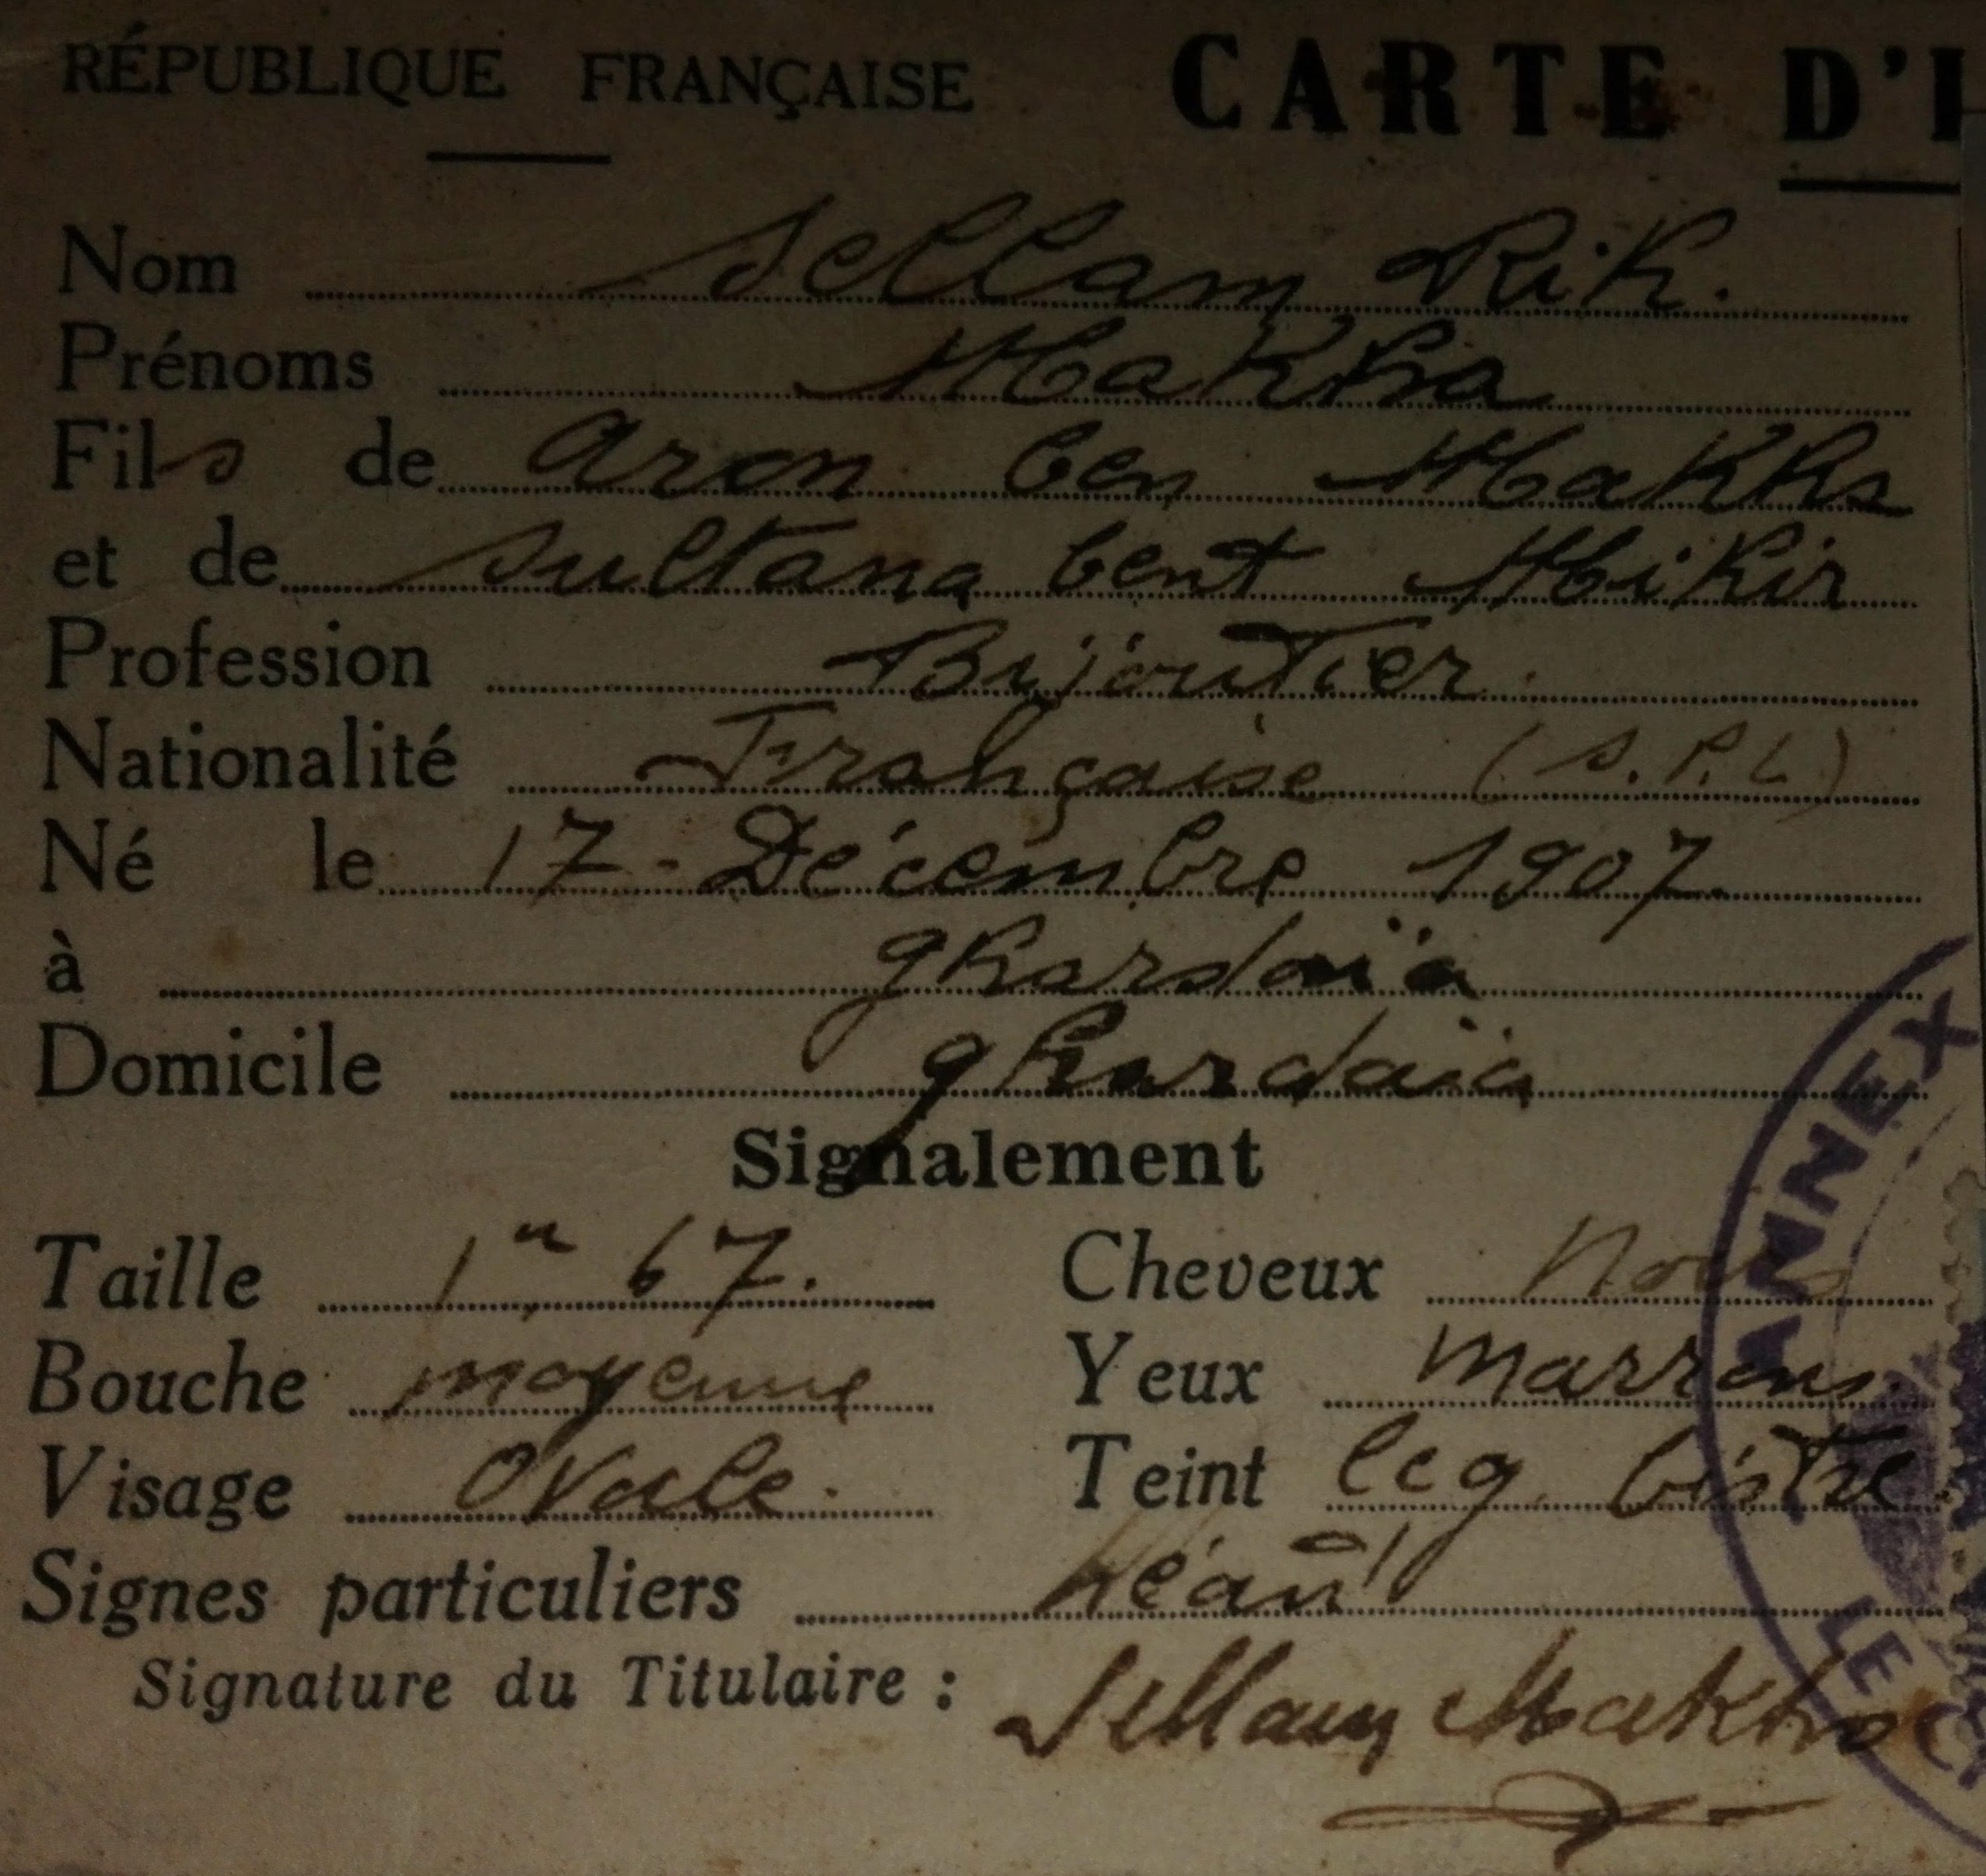 RÉPUBLIQUE FRANÇAISE CARTE D'I
Nom Sellam Rik.
Prénoms Makha
Fils de Aron ben Makha
et de Sultana bent Mikir
Profession Bijoutier.
Nationalité Française (S.P.L)
Né le 17 - Décembre 1907
à ghardaïa
Domicile ghardaïa
Signalement
Taille 1m 67. Cheveux Noirs
Bouche moyenne Yeux Marrons.
Visage Ovale. Teint leg. bistre
Signes particuliers Néant
Signature du Titulaire : Sellam Makha
ANNEX
LE C